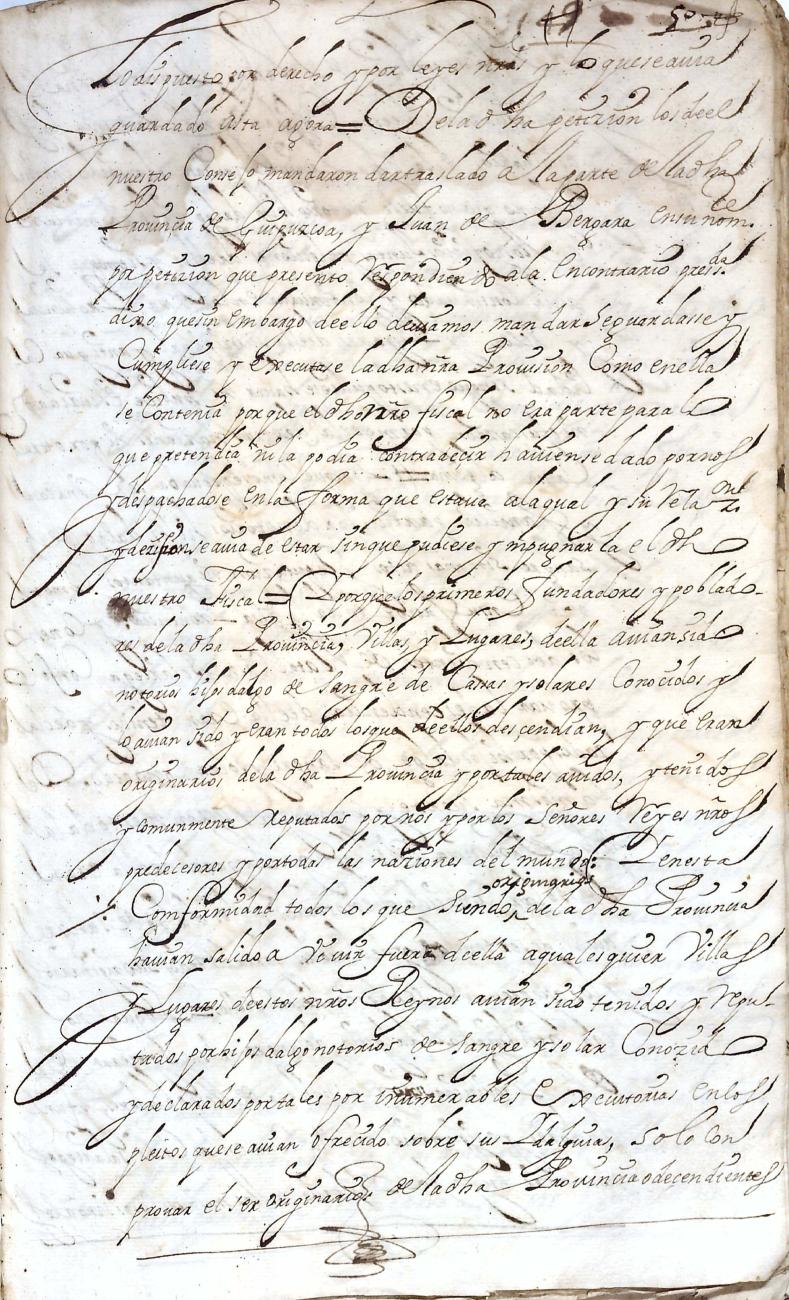 Lo dispuesto por derecho y por leyes nrãs y lo que se auia
guardado asta agora = De la dha petizion los de el
nuestro Consejo mandaron dar traslado a la parte de la dha
Prouinçia de Guipuzcoa, y Juan de Bergara en su nom.re
por petizion que presento Respondiendo a la en contrario press.da
dixo que sin embargo de ello deuiamos mandar se guardasse y
Cumpliese y executase la dha nrã Prouision Como en ella
se Contenia porque el dho nrõ fiscal no era parte para lo
que pretendia ni la podia contradeçir hauiensse dado por nos
y despachadose en la forma que estaua a la qual y su Relaz.on
y dezision se auia de estar sin que pudiese ympugnarla el dho
nuestro Fiscal = Y porque los primeros fundadores y poblado-
res de la dha Prouinçia, Villas, y Lugares, de ella auian sido
notorios hijos dalgo de sangre de Casas y solares Conocidos y
lo auian sido y eran todos los que de ellos desçendian, y que eran
originarios de la dha Prouinçia y por tales auidos, y tenidos
y comunmente Reputados por nos y por los Señores Reyes nrõs
predecesores y por todas las naziones del mundo: Y en esta
Conformidad todos los que siendo originarios de la dha Prouincia
hauian salido a viuir fuera de ella a qualesquier Villas
y Lugares de estos nrõs Reynos auian sido tenidos y Repu-
tados por hijos dalgo notorios de sangre y solar Conozido
y declarados por tales por inumerables Executorias en los
pleitos que se auian ofrecido sobre sus Ydalguias, solo con
prouar el ser originarios de la dha Prouincia o decendientes